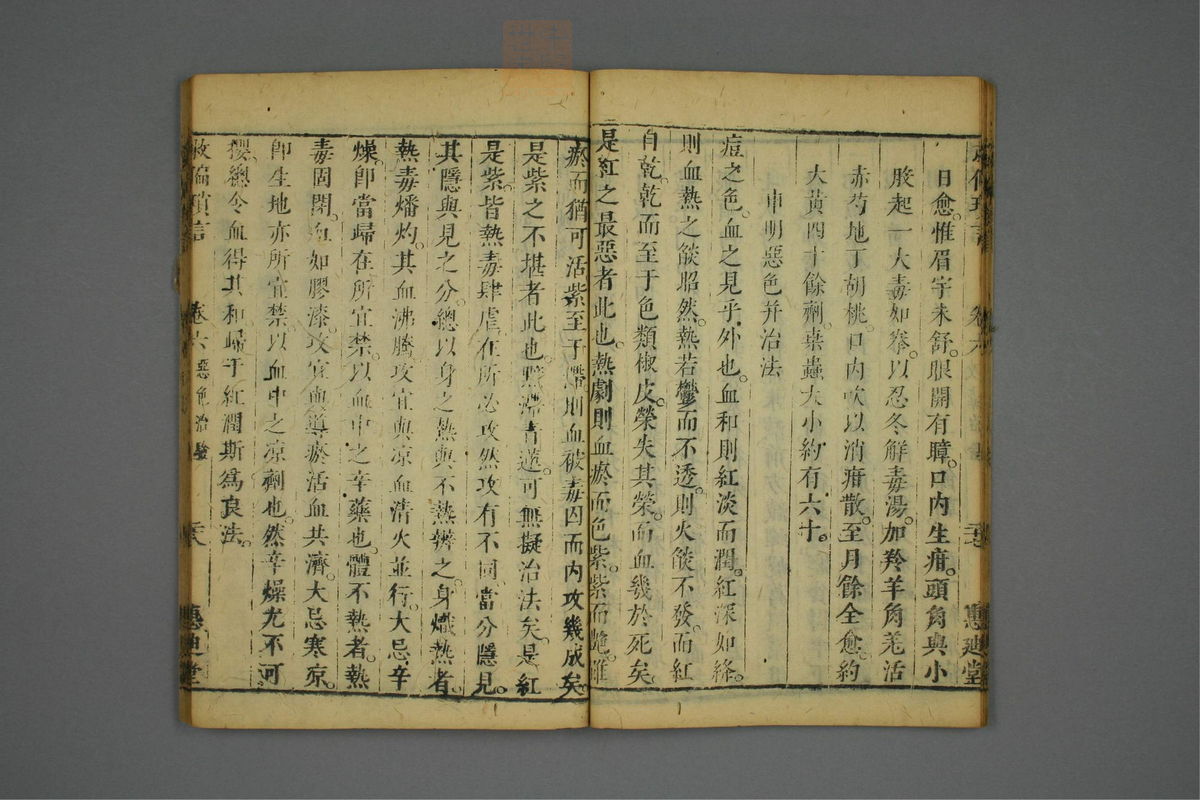 日愈。惟眉宇未舒。眼開有瞕。口內生疳。頭角與小
股起一大毒如拳。以忍冬解毒湯。加羚羊角羌活
赤芍地丁胡桃。口內吹以消疳散。至月餘全愈。約
大黃四十餘劑。桑蟲大小約有六十。
申明惡色并治法
痘之色。血之見乎外也。血和則紅淡而潤。紅深如絳。
則血熱之燄昭然。熱若鬱而不透。則火燄不發。而紅
自乾。乾而至于色類椒皮。榮失其榮。而血幾於死矣。
是紅之最惡者此也。熱劇則血瘀而色紫。紫而艷。雖
瘀而猶可活。紫至于滯。則血被毒囚而內攻幾成矣。
是紫之不堪者此也。黑滯青遊。可無擬治法矣。是紅
是紫。皆熱毒肆虐。在所必攻。然攻有不同。當分隱見。
其隱與見之分。總以身之熱與不熱辨之。身熾熱者。
熱毒燔灼。其血沸騰。攻宜與凉血清火並行。大忌辛
燥。卽當歸在所宜禁。以血中之辛藥也。體不熱者。熱
毒固閉。血如膠漆。攻宜與導瘀活血共濟。大忌寒凉。
卽生地亦所宜禁。以血中之凉劑也。然辛燥尤不可
攖。總令血得其和。歸于紅潤。斯爲良法。
救偏瑣言
卷六 惡色治驗
惠迪堂